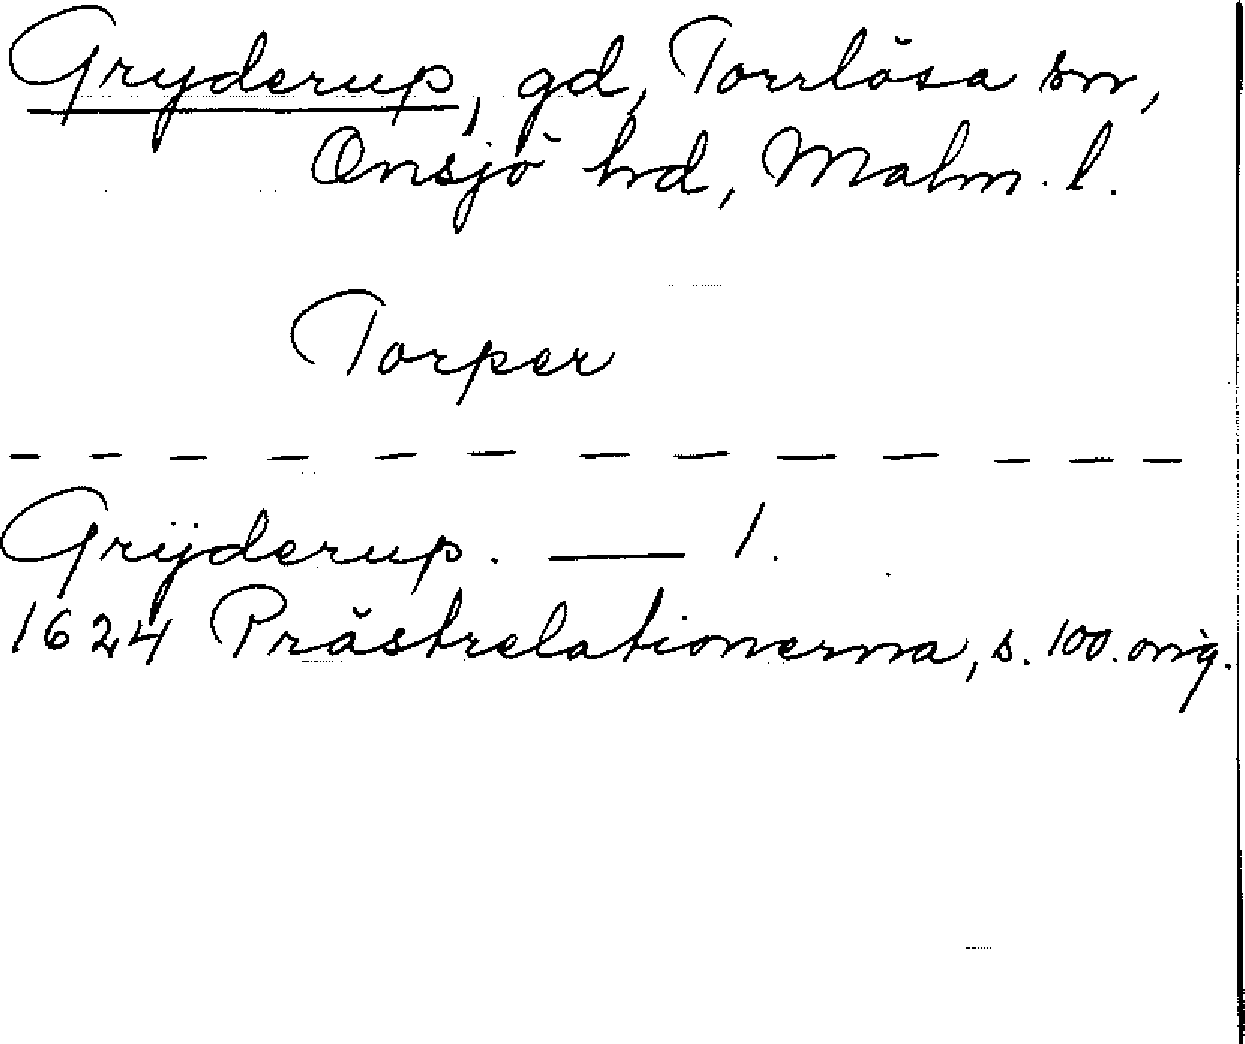 Gryderup, gd, Torrlösa sn,
Onsjö hd, Malm. l.
Torper
– – – – – – – – – – – – –
Grÿderup. — 1.
1624 Prästrelationerna, s. 100. orig.